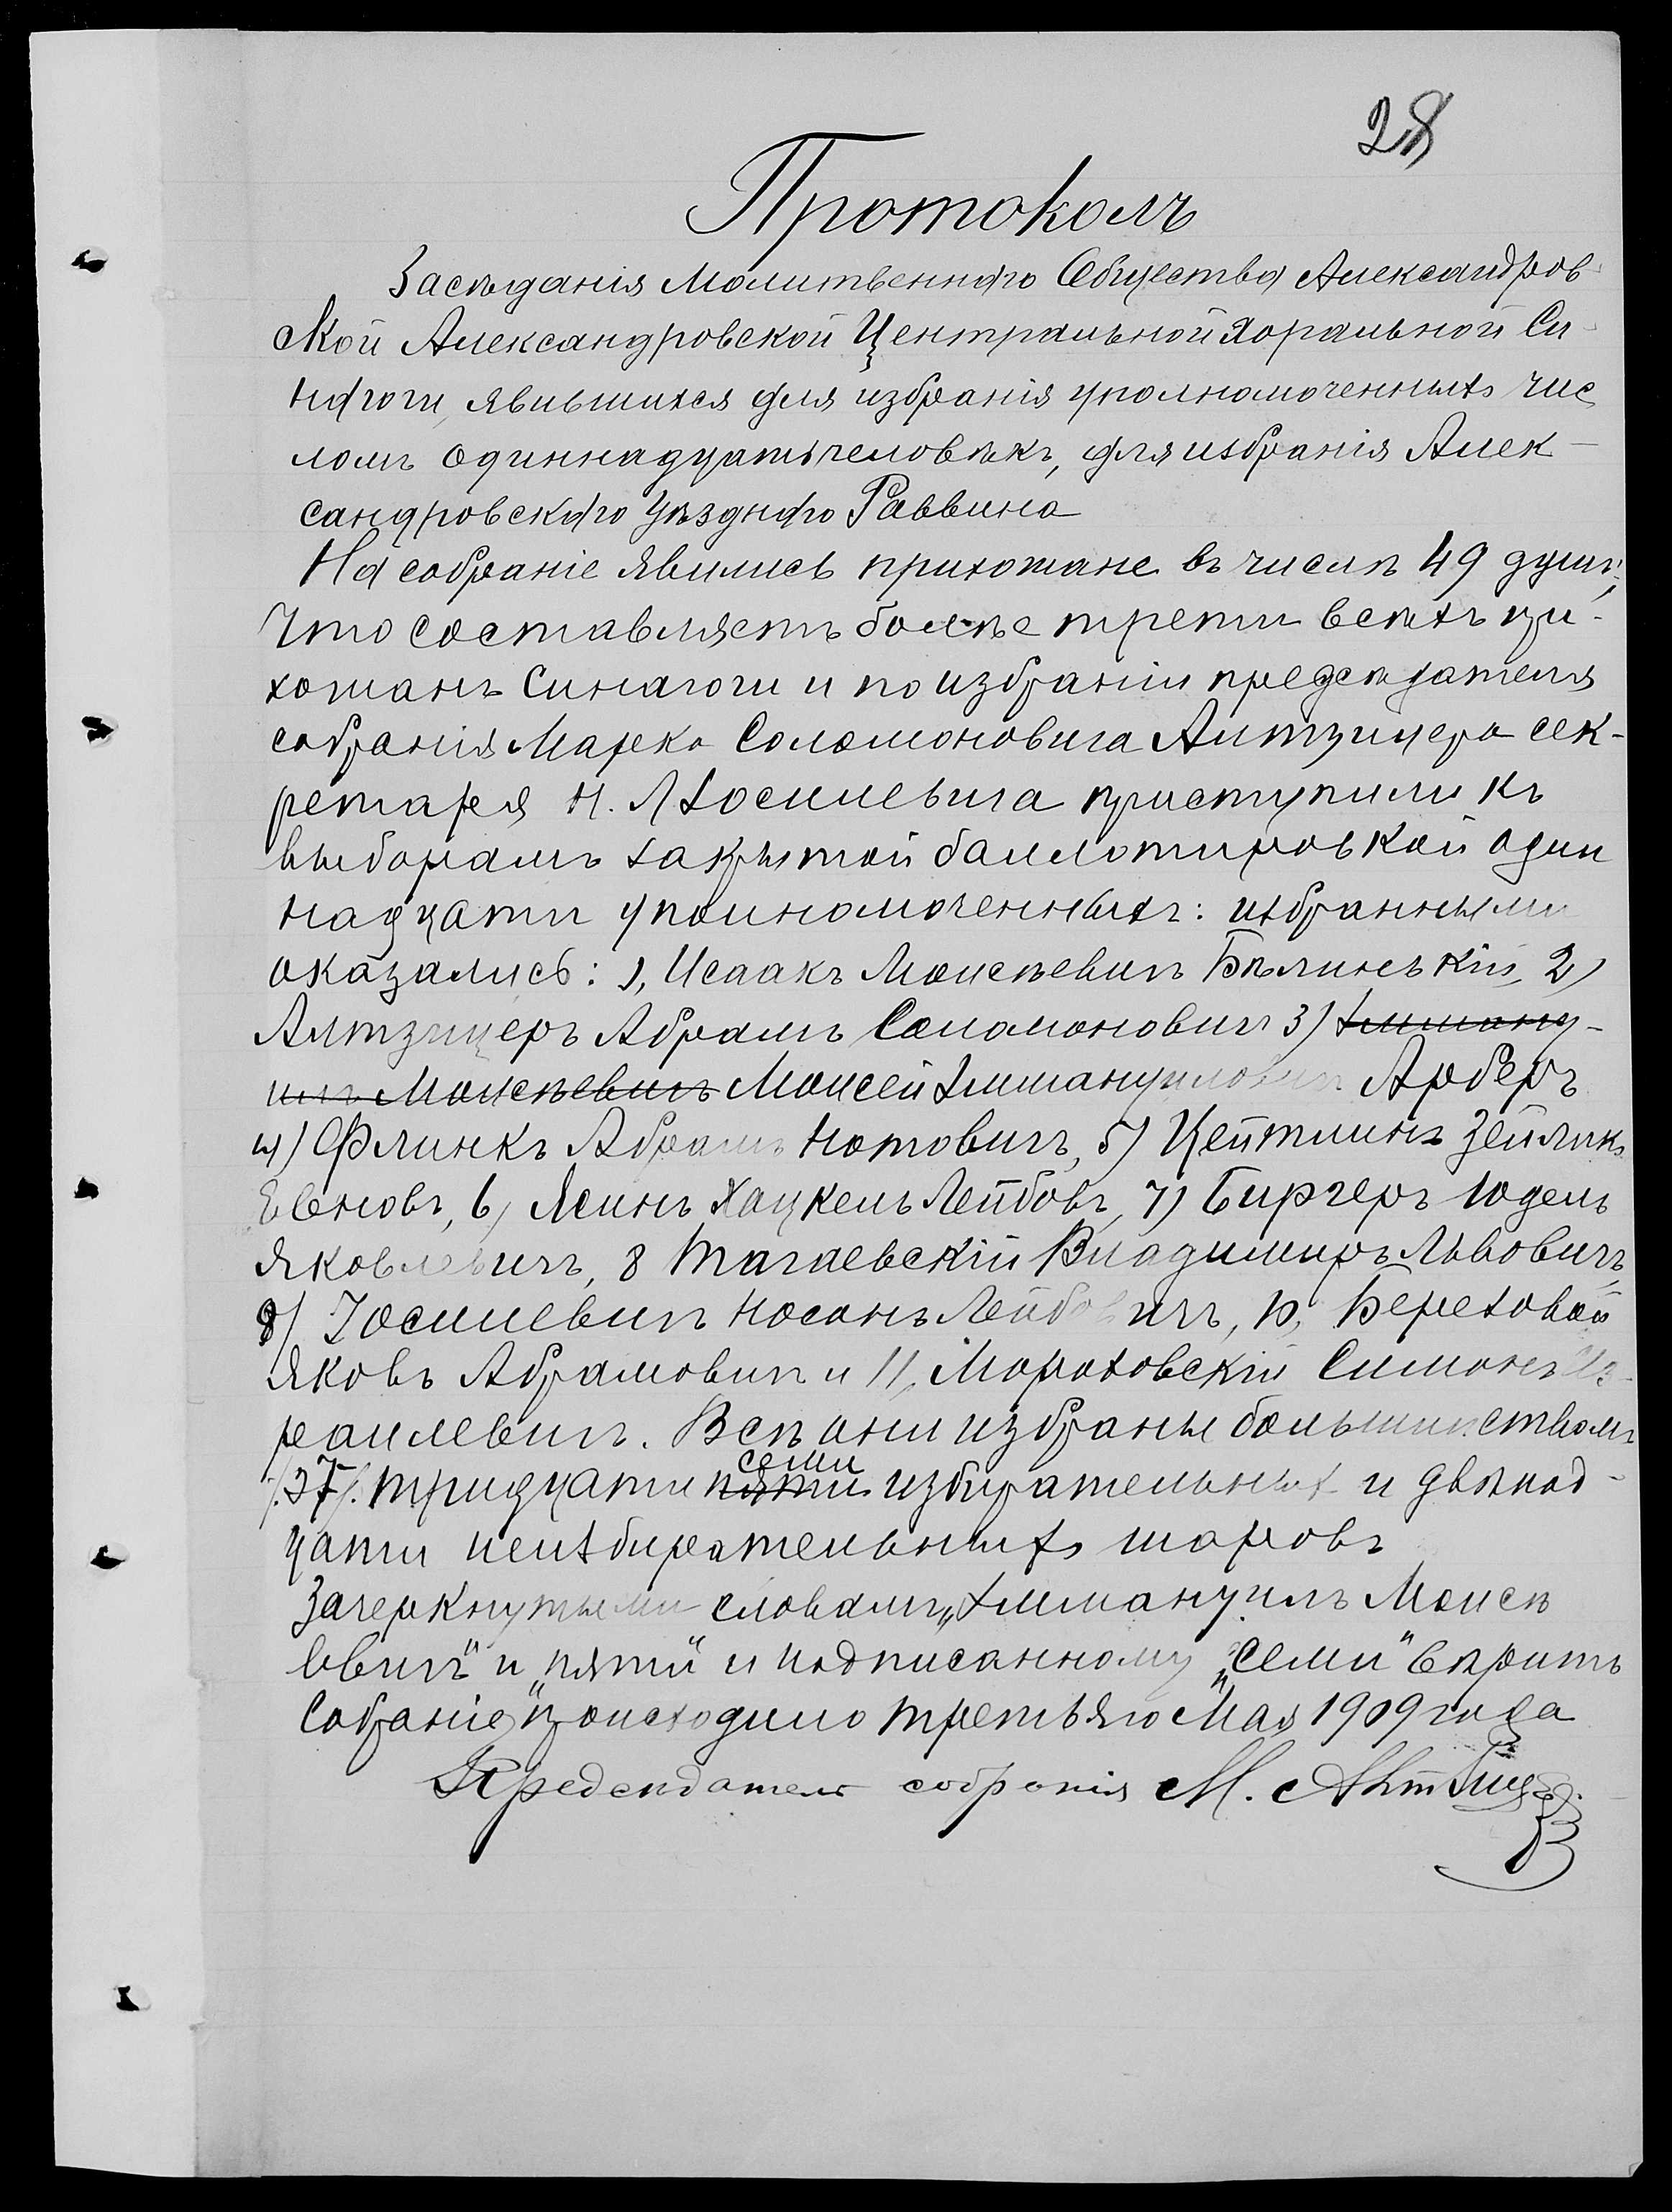 28
Протоколъ
Засѣданія Молитвеннаго Общества Александров
ской Александровской Центральной Хоральной Си-
нагоги, явившихся для избранія уполномоченныхъ чис
ломъ одиннадцать человѣкъ, для избранія Алек-
сандровскаго Уѣзднаго Раввина
На собраніе явились прихожане въ числѣ 49 душъ,
что составляетъ болѣе трети всѣхъ при-
хожанъ Синагоги и по избраніи предсѣдателя
собранія Марка Соломоновича Алтзицера сек-
ретаря Н. Л Іосилевича приступили къ
выборамъ закрытой баллотировкой один
надцати уполномоченныхъ: избранными
оказались: 1, Исаакъ Моисѣевичъ Бѣлинскій, 2)
Алтзицеръ Абрамъ Соломоновичъ 3) Эмману-
илъ Моисѣевичъ Моисей Эммануиловичъ Арберъ
4) Флинкъ Абрамъ Нотовичъ, 5) Цейтлинъ Зейликъ
Евеновъ, 6) Ясинъ Хацкель Лейбовъ, 7) Биргеръ Юдель
Яковлевичъ, 8 Тагаевскій Владимиръ Львовичъ,
9) Іосилевичъ Носонъ Лейбовичъ, 10, Березовой
Яковъ Абрамовичъ и 11, Мороховскій Симонъ Из-
раилевичъ. Всѣ они избраны большинствомъ
/.37/. тридцати пяти семи избирательныхъ и двѣнад-
цати неизбирательныхъ шаровъ
Зачеркнутыми словамъ „Эммануилъ Моисѣ
евичъ" и „пяти" и надписанному „семи" вѣрить
Собраніе происходило третьяго Мая 1909 года
Предсѣдатель собранія М. Алтзицер